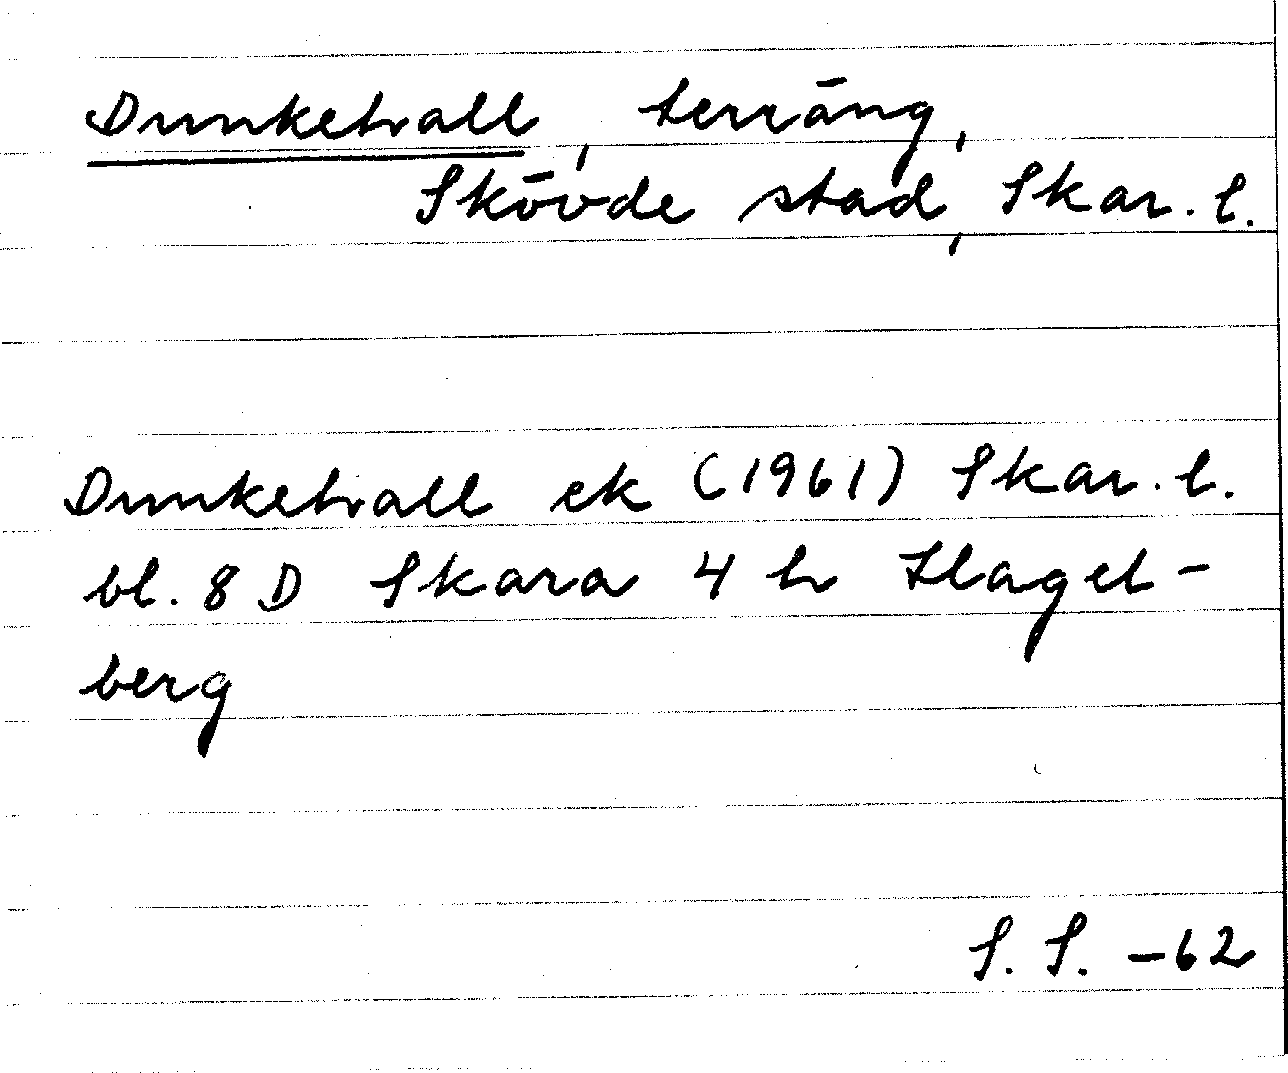 Dunketrall, terräng,
Skövde stad, Skar. l.
Dunketrall ek (1961) Skar. l.
bl. 8 D Skara 4 h Hagel-
berg
S. S. -62